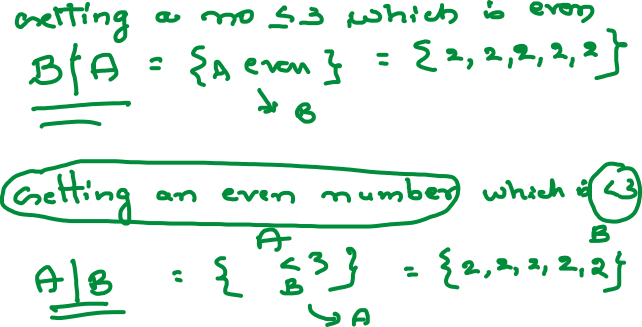 Getting a no ≤3 which is even
B|A = {A even} = {2,2,2,2,2}
B
Getting an even number which is <3
A B
A|B = { <3 } = {2,2,2,2,2}
B
A